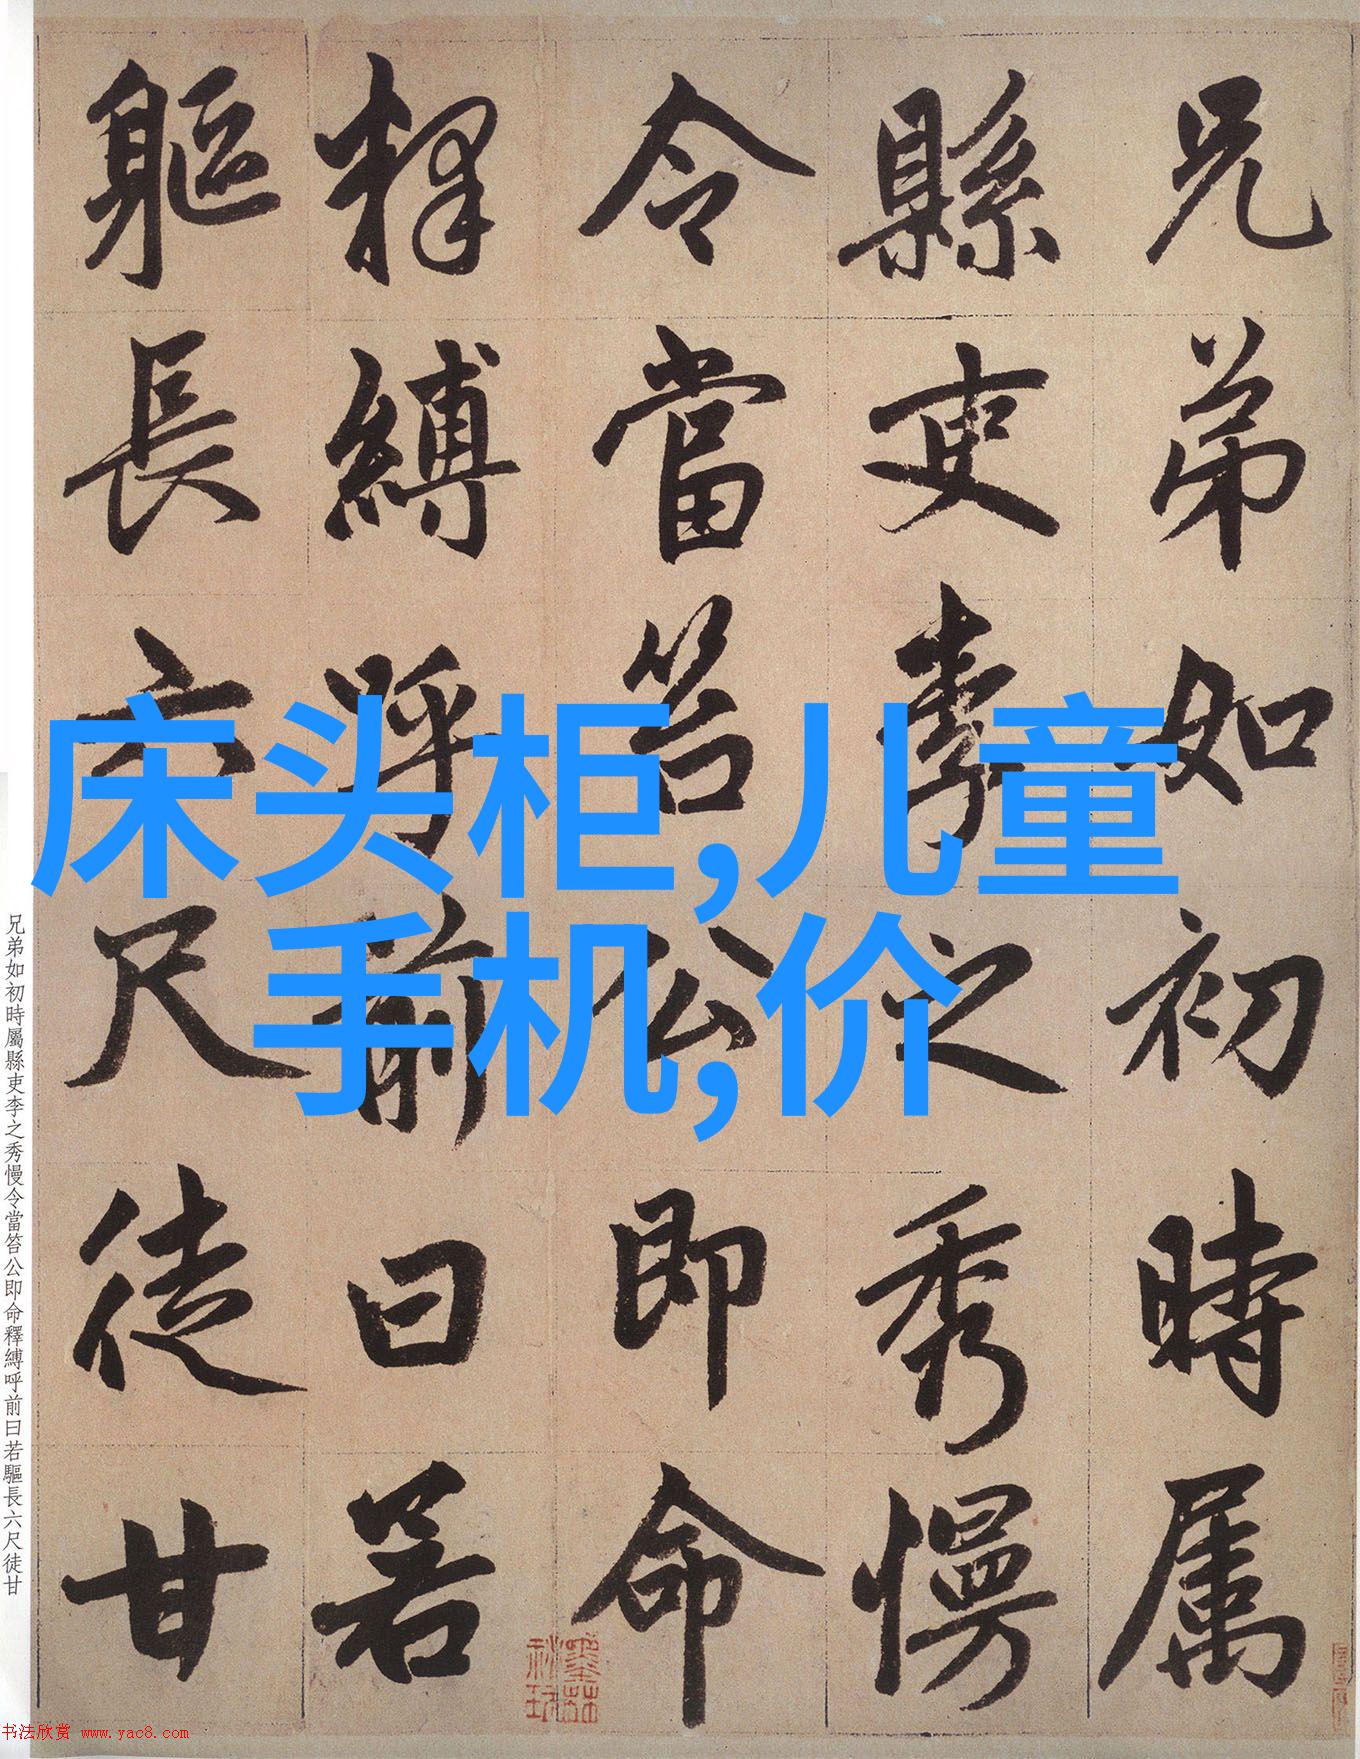 兄弟如初時属
縣吏李之秀慢
令當笞公即命
釋縛呼前曰若
軀長六尺徒甘
床头柜,儿童
手机,价
兄弟如初時屬縣吏李之秀慢令當笞公即命釋縛呼前曰若驅長六尺徒甘
书法欣赏 www.yac8.com